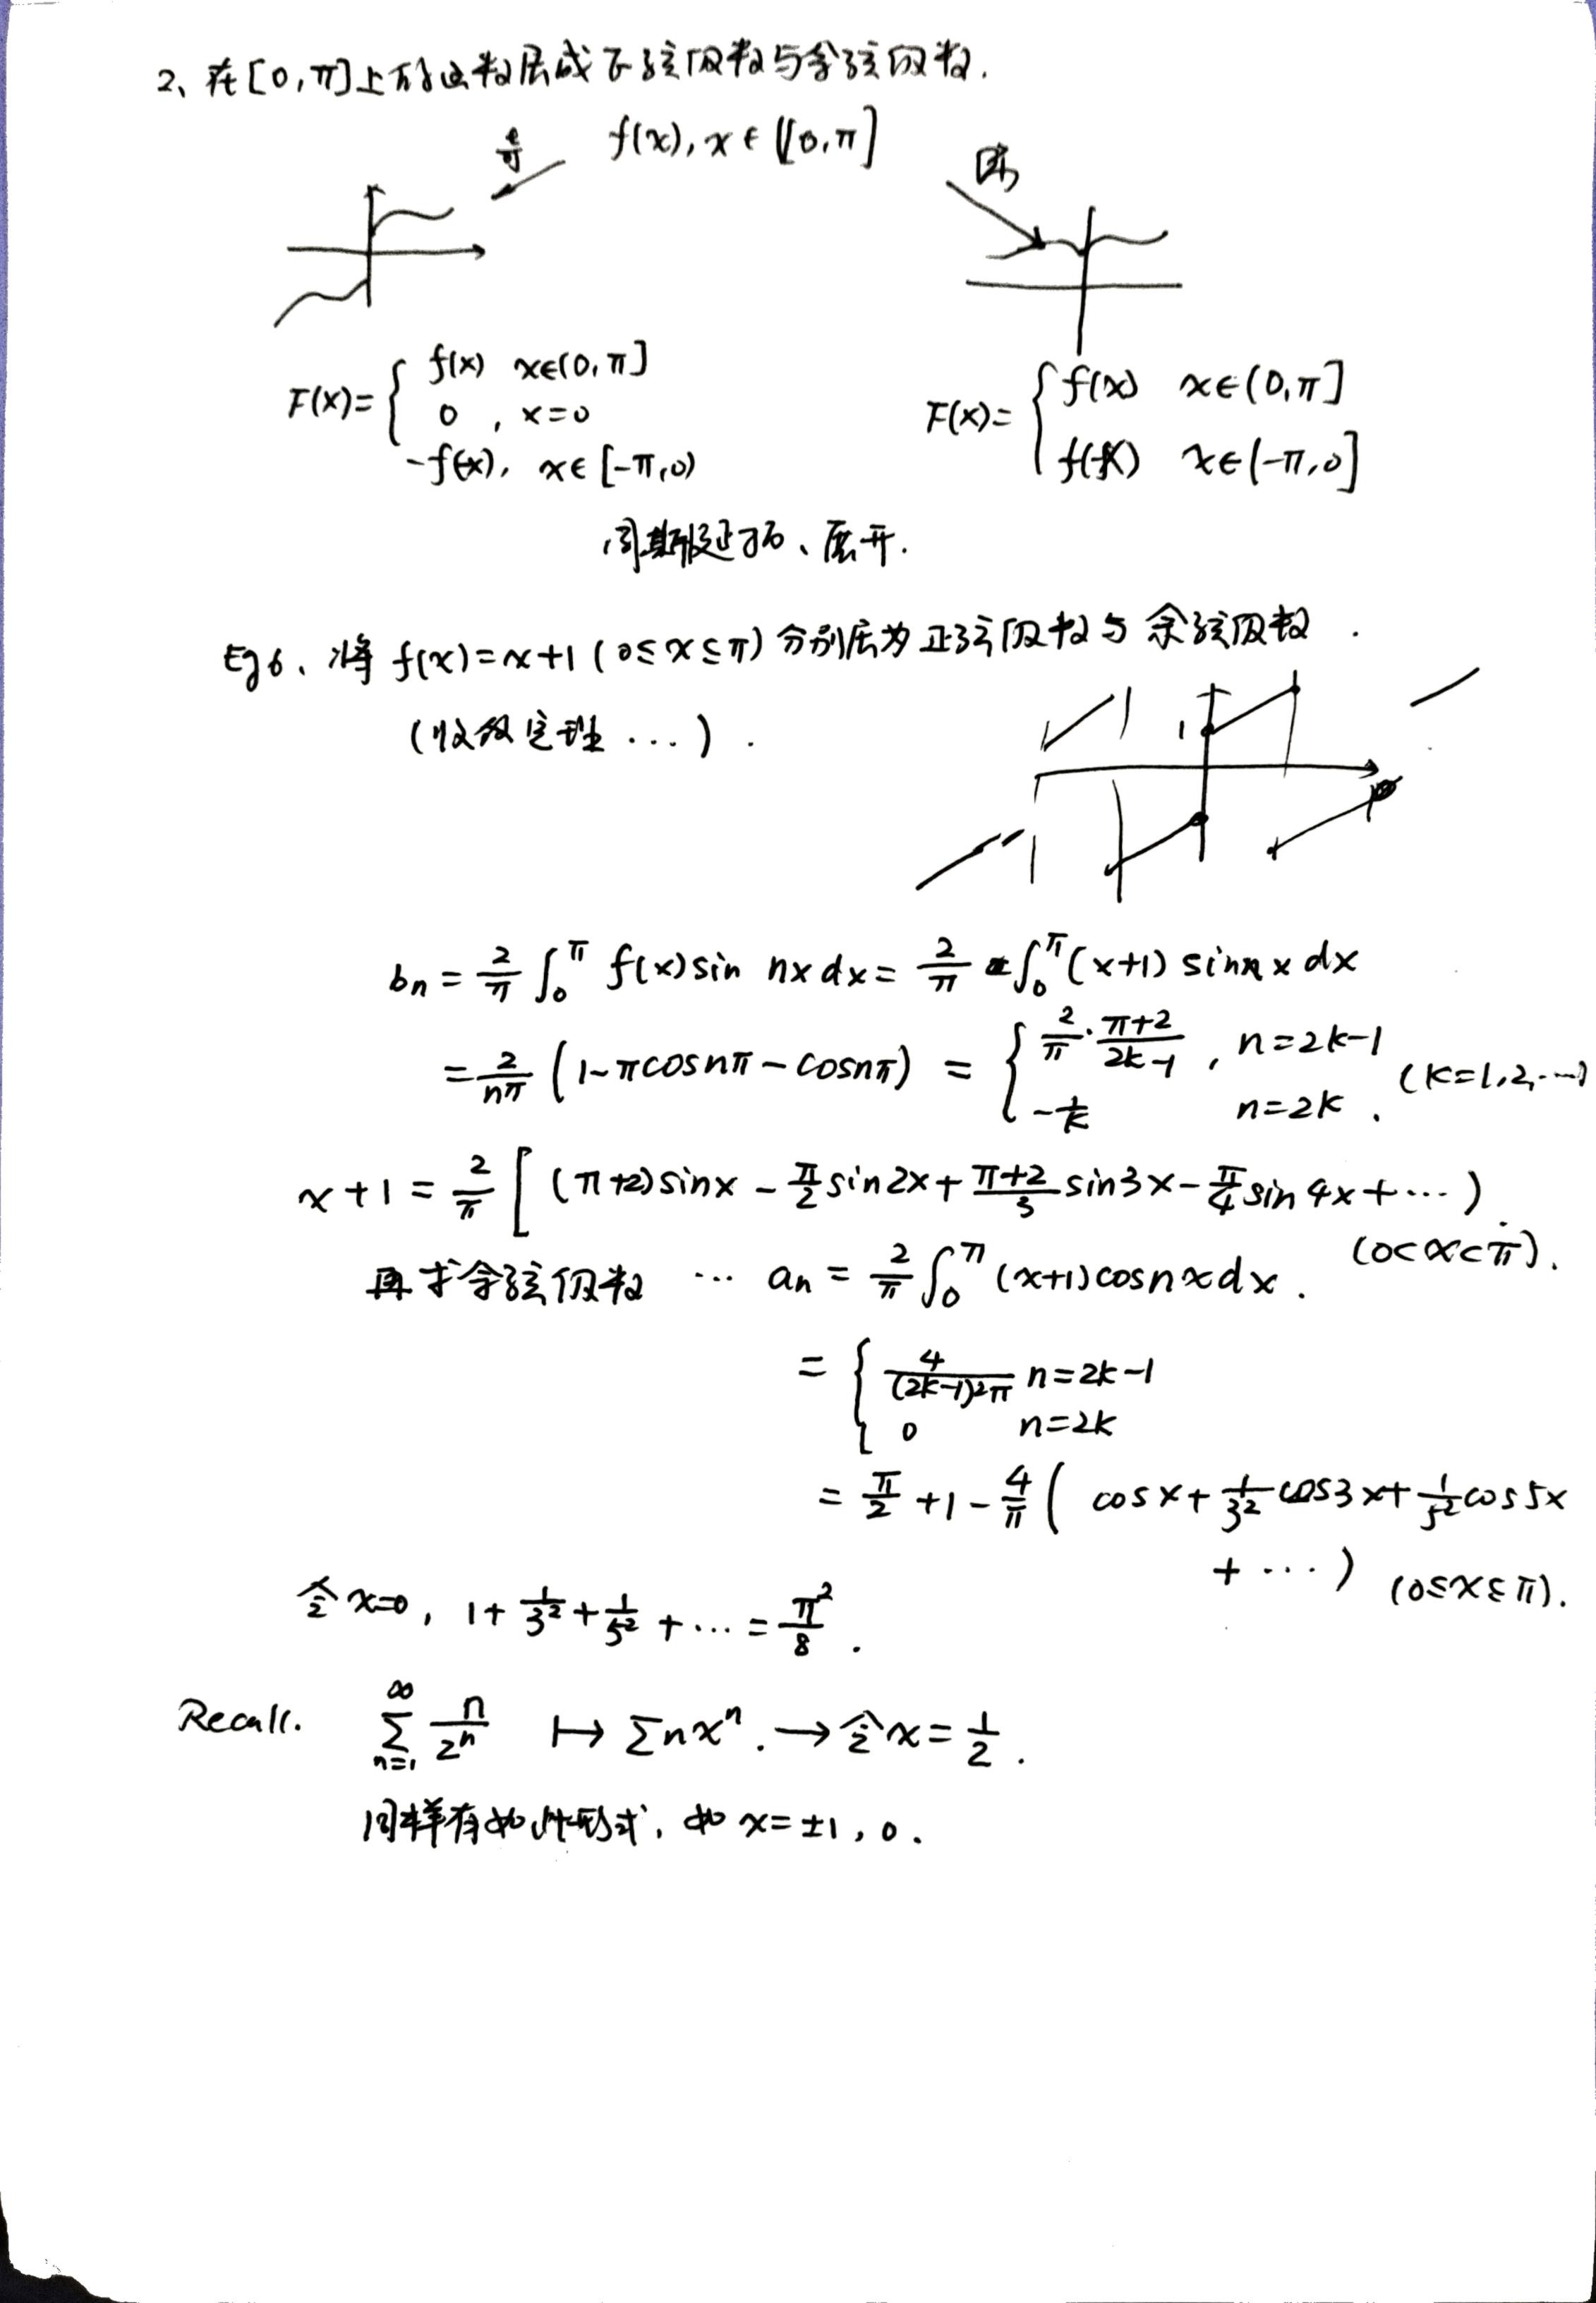 2、在[0,π]上的函数展成正弦级数与余弦级数.
f(x), x∈[0,π]
奇
偶
F(x)= { f(x) x∈(0,π]
0 , x=0
-f(-x), x∈[-π,0)
F(x)= { f(x) x∈(0,π]
f(-x) x∈[-π,0]
周期延拓、展开.
Eg6、将 f(x)=x+1 (0≤x≤π) 分别展为正弦级数与余弦级数.
(收敛定理 ...).
1
bn = 2/π ∫_0^π f(x) sin nx dx = 2/π ∫_0^π (x+1) sin nx dx
= 2/(nπ) (1-πcosnπ-cosnπ) = { 2/π · (π+2)/(2k-1) , n=2k-1
-1/k n=2k . (k=1,2,...)
x+1 = 2/π [ (π+2)sinx - π/2 sin2x + (π+2)/3 sin3x - π/4 sin4x + ... ) .
(0<x<π).
再求余弦级数 ... an = 2/π ∫_0^π (x+1)cosnxdx .
= { 4/((2k-1)²π) n=2k-1
0 n=2k
= π/2 +1- 4/π ( cosx + 1/3² cos3x + 1/5² cos5x
+ ... ) (0≤x≤π).
令 x=0, 1+ 1/3² + 1/5² + ... = π²/8 .
Recall. ∑_{n=1}^∞ n/2ⁿ ↦ ∑nxⁿ. → 令 x= 1/2 .
同样有如此形式, 如 x=±1, 0.